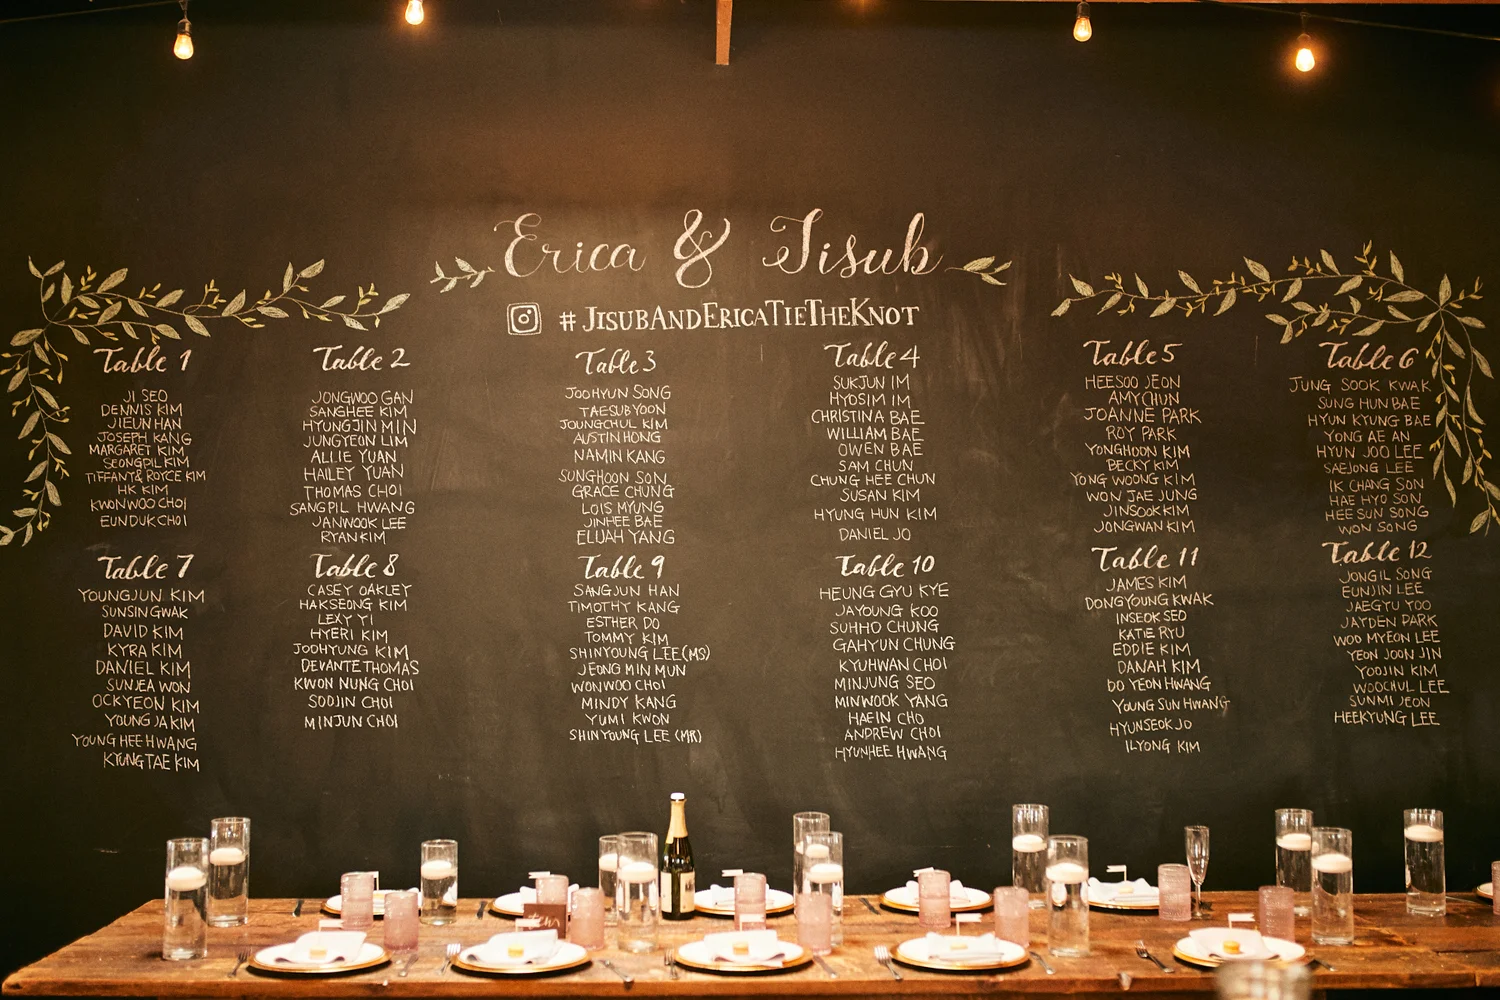 Erica & Jisub
#JISUBANDERICATIETHEKNOT
Table 1
JI SEO
DENNIS KIM
JIEUN HAN
JOSEPH KANG
MARGARET KIM
SEONGPIL KIM
TIFFANY & ROYCE KIM
HK KIM
KWONWOO CHOI
EUNDUK CHOI
Table 2
JONGWOO GAN
SANGHEE KIM
HYUNGJIN MIN
JUNGYEON LIM
ALLIE YUAN
HAILEY YUAN
THOMAS CHOI
SANGPIL HWANG
JANWOOK LEE
RYAN KIM
Table 3
JOOHYUN SONG
TAESUB YOON
JOUNGCHUL KIM
AUSTIN HONG
NAMIN KANG
SUNGHOON SON
GRACE CHUNG
LOIS MYUNG
JINHEE BAE
ELIJAH YANG
Table 4
SUKJUN IM
HYOSIM IM
CHRISTINA BAE
WILLIAM BAE
OWEN BAE
SAM CHUN
CHUNG HEE CHUN
SUSAN KIM
HYUNG HUN KIM
DANIEL JO
Table 5
HEESOO JEON
AMY CHUN
JOANNE PARK
ROY PARK
YONGHOON KIM
BECKY KIM
YONG WOONG KIM
WON JAE JUNG
JINSOOK KIM
JONGWAN KIM
Table 6
JUNG SOOK KWAK
SUNG HUN BAE
HYUN KYUNG BAE
YONG AE AN
HYUN JOO LEE
SAEJONG LEE
IK CHANG SON
HAE HYO SON
HEE SUN SONG
WON SONG
Table 7
YOUNGJUN KIM
SUNSIN GWAK
DAVID KIM
KYRA KIM
DANIEL KIM
SUNJEA WON
OCKYEON KIM
YOUNG JA KIM
YOUNG HEE HWANG
KYUNG TAE KIM
Table 8
CASEY OAKLEY
HAKSEONG KIM
LEXY YI
HYERI KIM
JOOHYUNG KIM
DEVANTE THOMAS
KWON NUNG CHOI
SOOJIN CHOI
MINJUN CHOI
Table 9
SANGJUN HAN
TIMOTHY KANG
ESTHER DO
TOMMY KIM
SHINYOUNG LEE (MS)
JEONG MIN MUN
WONWOO CHOI
MINDY KANG
YUMI KWON
SHINYOUNG LEE (MR)
Table 10
HEUNG GYU KYE
JAYOUNG KOO
SUHHO CHUNG
GAHYUN CHUNG
KYUHWAN CHOI
MINJUNG SEO
MINWOOK YANG
HAEIN CHO
ANDREW CHOI
HYUNHEE HWANG
Table 11
JAMES KIM
DONGYOUNG KWAK
INSEOK SEO
KATIE RYU
EDDIE KIM
DANAH KIM
DO YEON HWANG
YOUNG SUN HWANG
HYUNSEOK JO
ILYONG KIM
Table 12
JONGIL SONG
EUNJIN LEE
JAEGYU YOO
JAYDEN PARK
WOO MYEON LEE
YEON JOON JIN
YOOJIN KIM
WOOCHUL LEE
SUNMI JEON
HEEKYUNG LEE